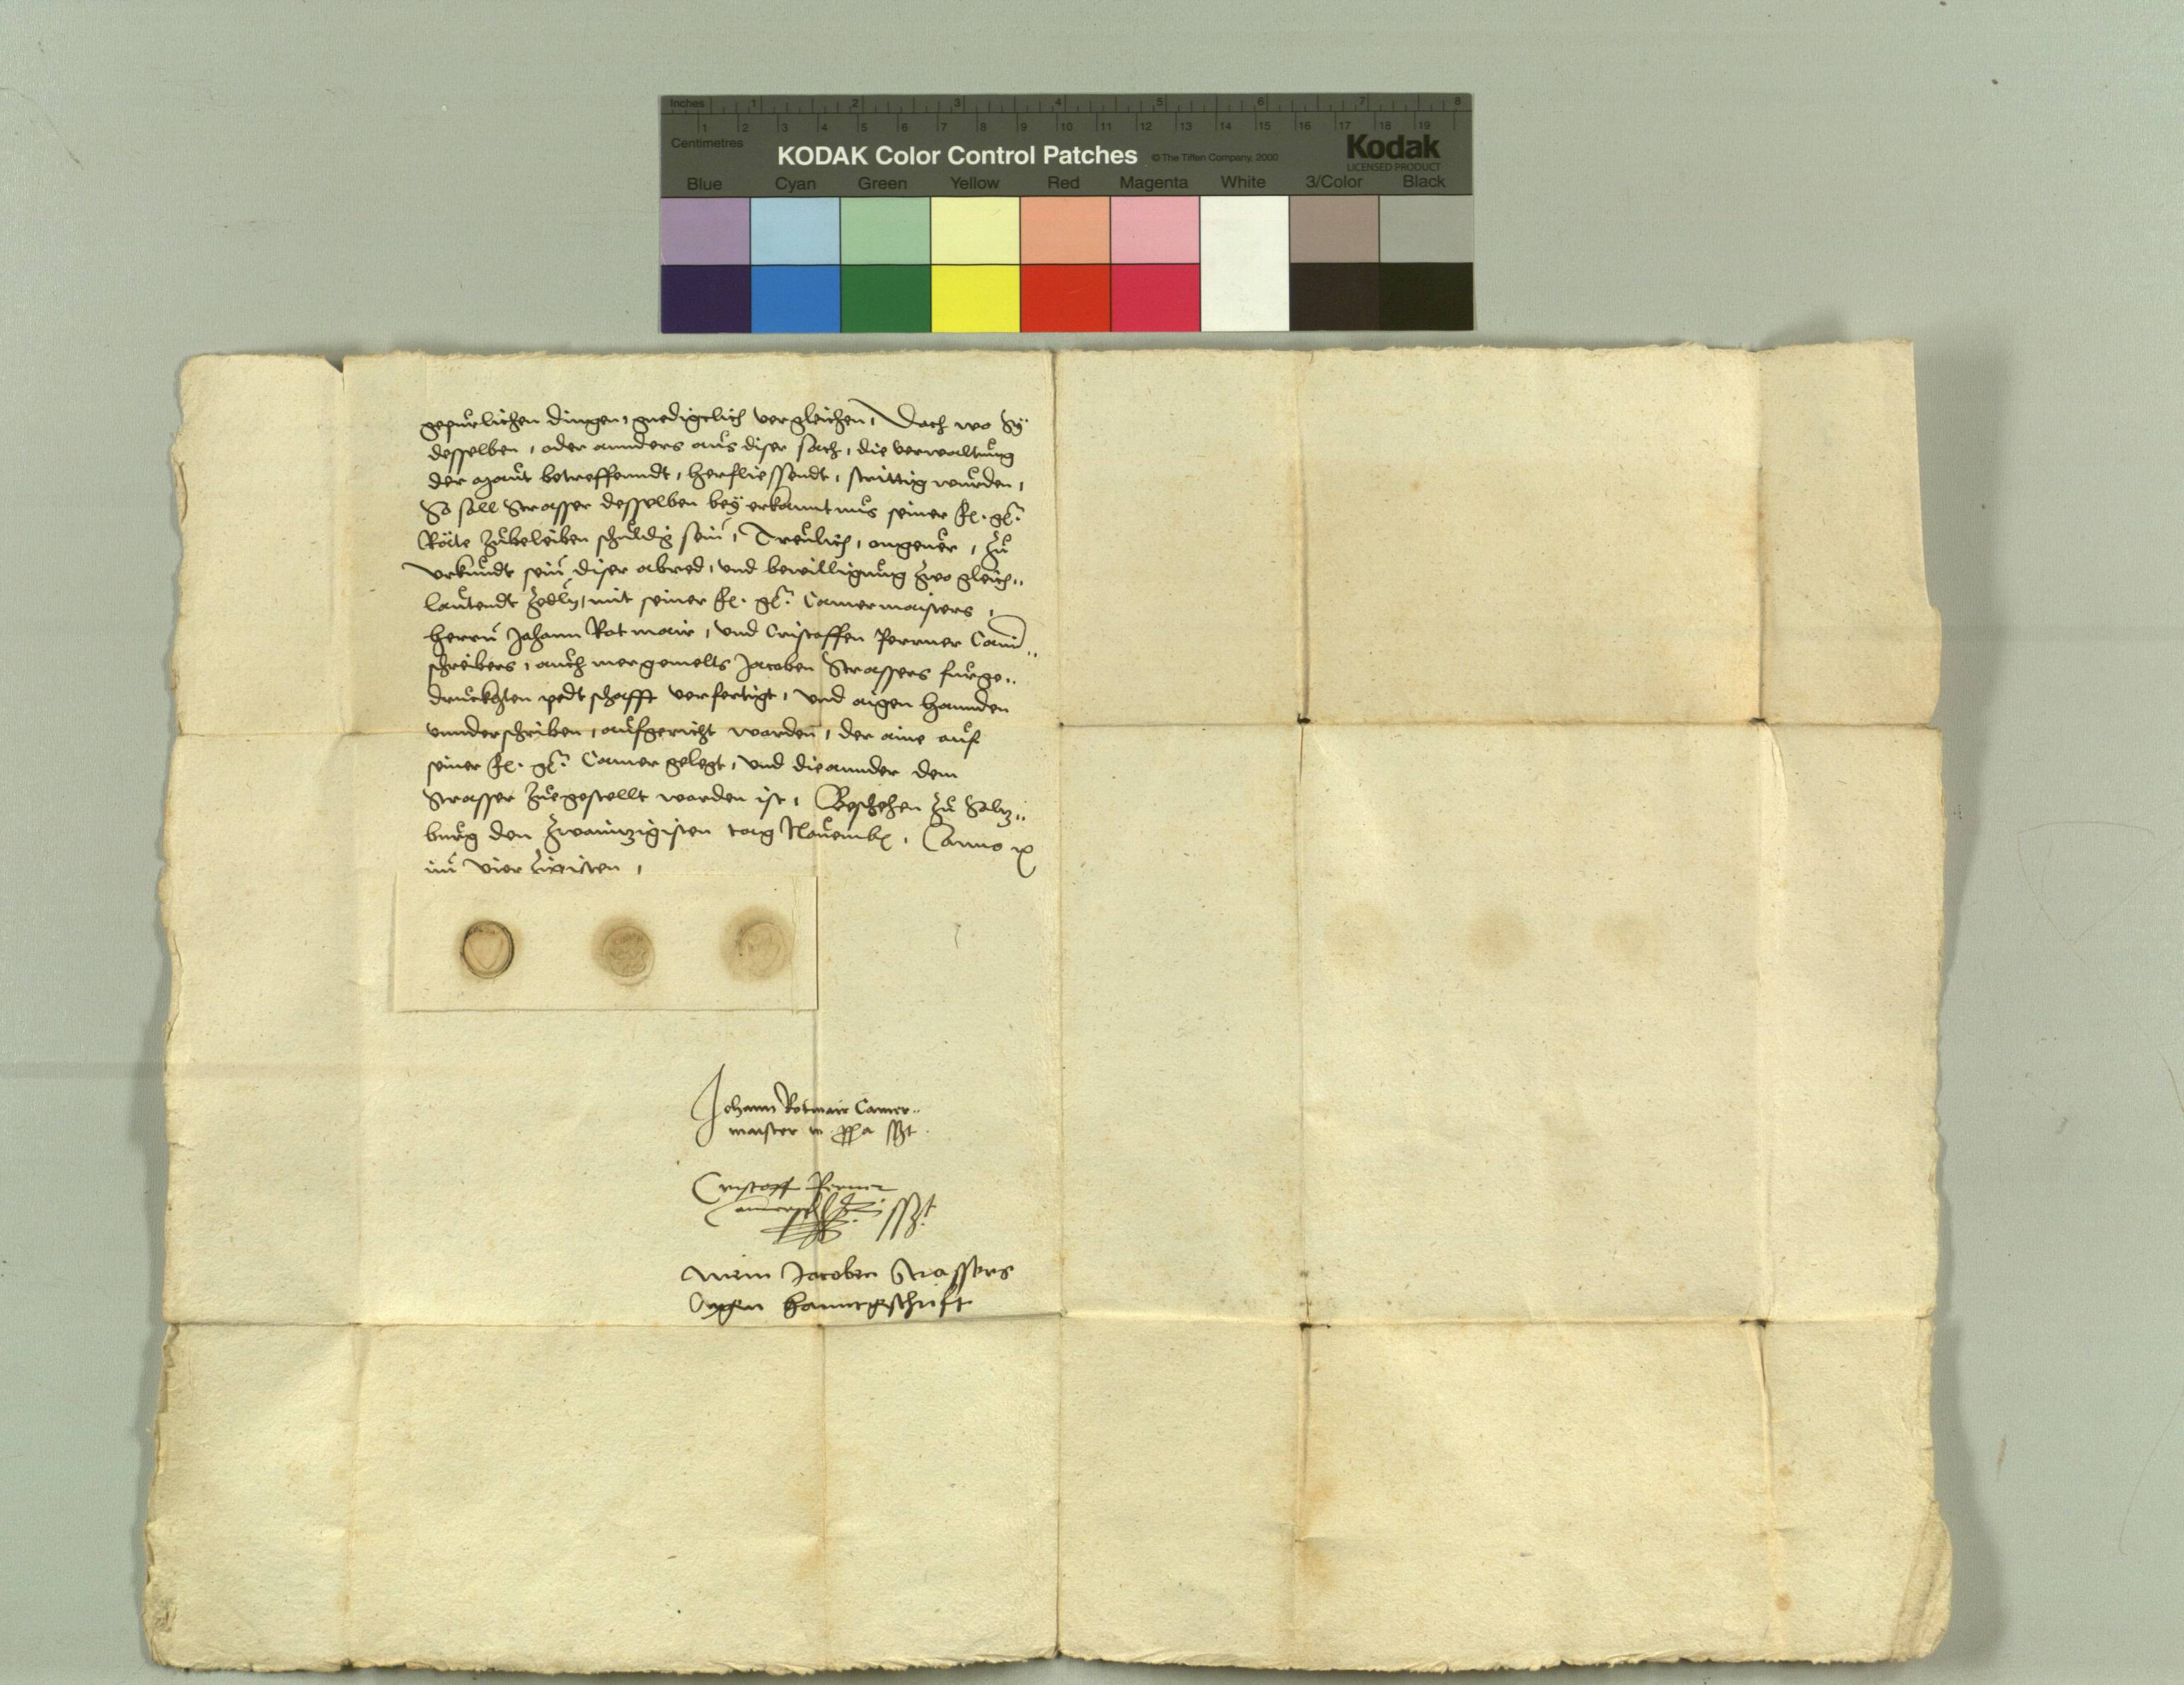 Inches 1 2 3 4 5 6 7 8
1 2 3 4 5 6 7 8 9 10 11 12 13 14 15 16 17 18 19
Centimetres
KODAK Color Control Patches © The Tiffen Company, 2000 Kodak
LICENSED PRODUCT
Blue Cyan Green Yellow Red Magenta White 3/Color Black
gepurlichen dingen, gnedigclich vergleichen, Doch wo Sy
desselben, oder annders aus diser sach, die verwaltung
der maut betreffenndt, herfliessendt, strittig wurden,
So soll Strasser desselben bey erkanntnus seiner fl. gn.
Räte zubeleiben schuldig sein, Treulich, ongeuer, Zu
vrkundt sein diser abred, vnd bewilligung zwo gleich„
lautendt Zedln, mit seiner fl. gn. Camermaisters,
herrn Johann Rotmair, vnd Cristoffen Perrner Camer„
schreibers, auch mergemelts Jacoben Strassers furge„
druckhten pedtschafft verfertigt, vnd aigen hannden
vnnderschriben, aufgericht worden, der aine auf
seiner fl. gn. Camer gelegt, vnd die annder dem
Strasser zuegestellt worden ist, Beschehen zu Saltz„
burg den zwaintzigisten tag Nouemb, Anno
im vierzigisten,
Johann Rotmair Camer„
maister m ppa sszt
Cristoff Perner
sszt
Mein Jacoben Strassers
Aygen hanntgeschrift